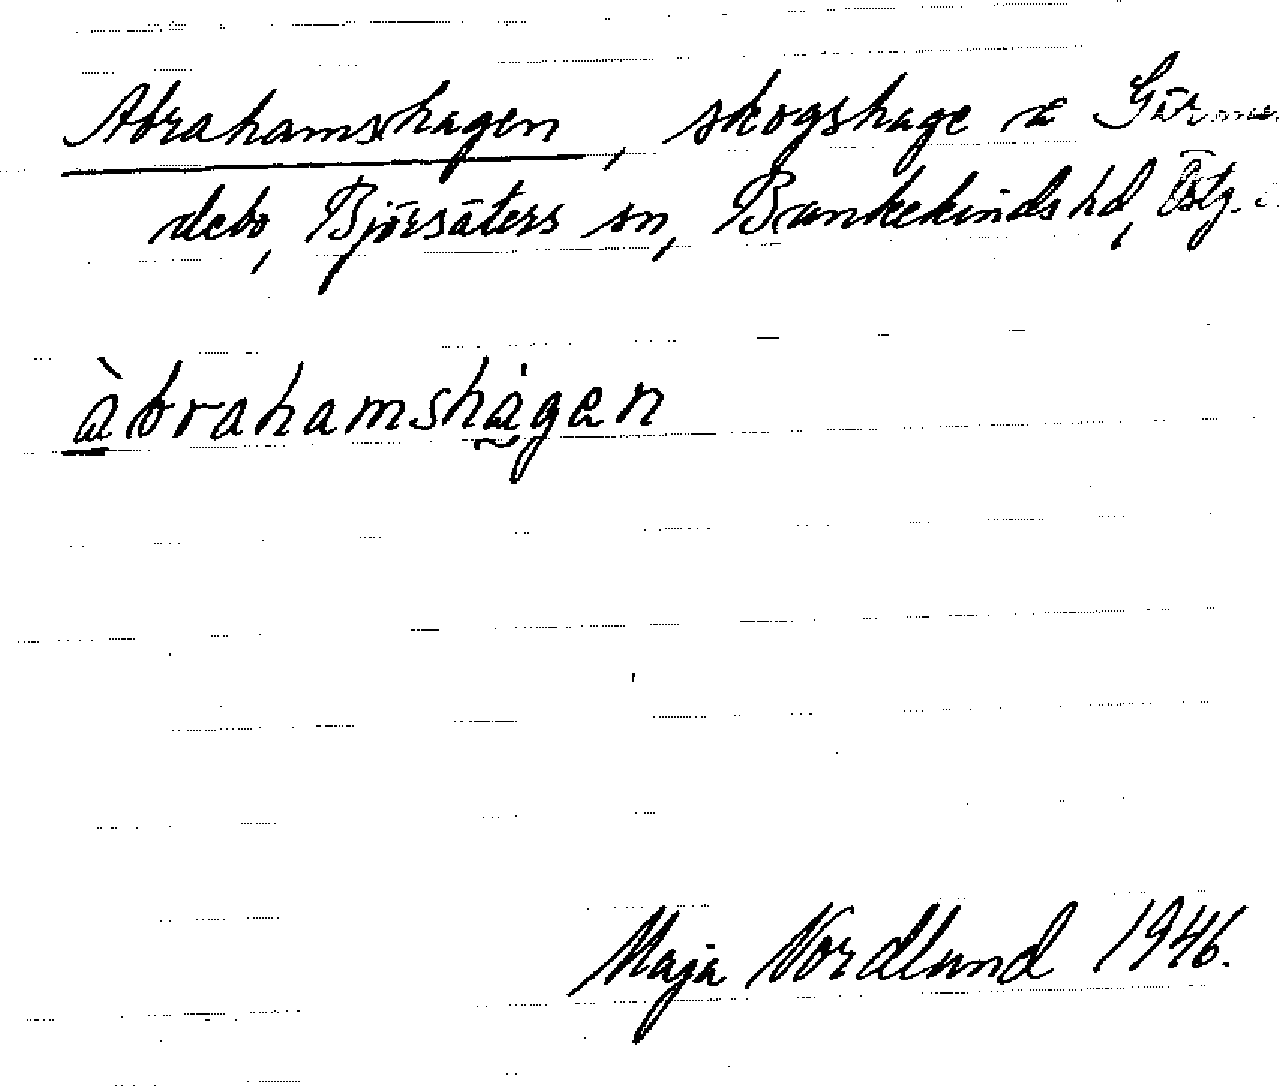 Abrahamshagen, skogshage å
debo, Björsäters sn, Bankekinds hd, Östg.
àbrahamshágen
Maja Nordlund 1946.